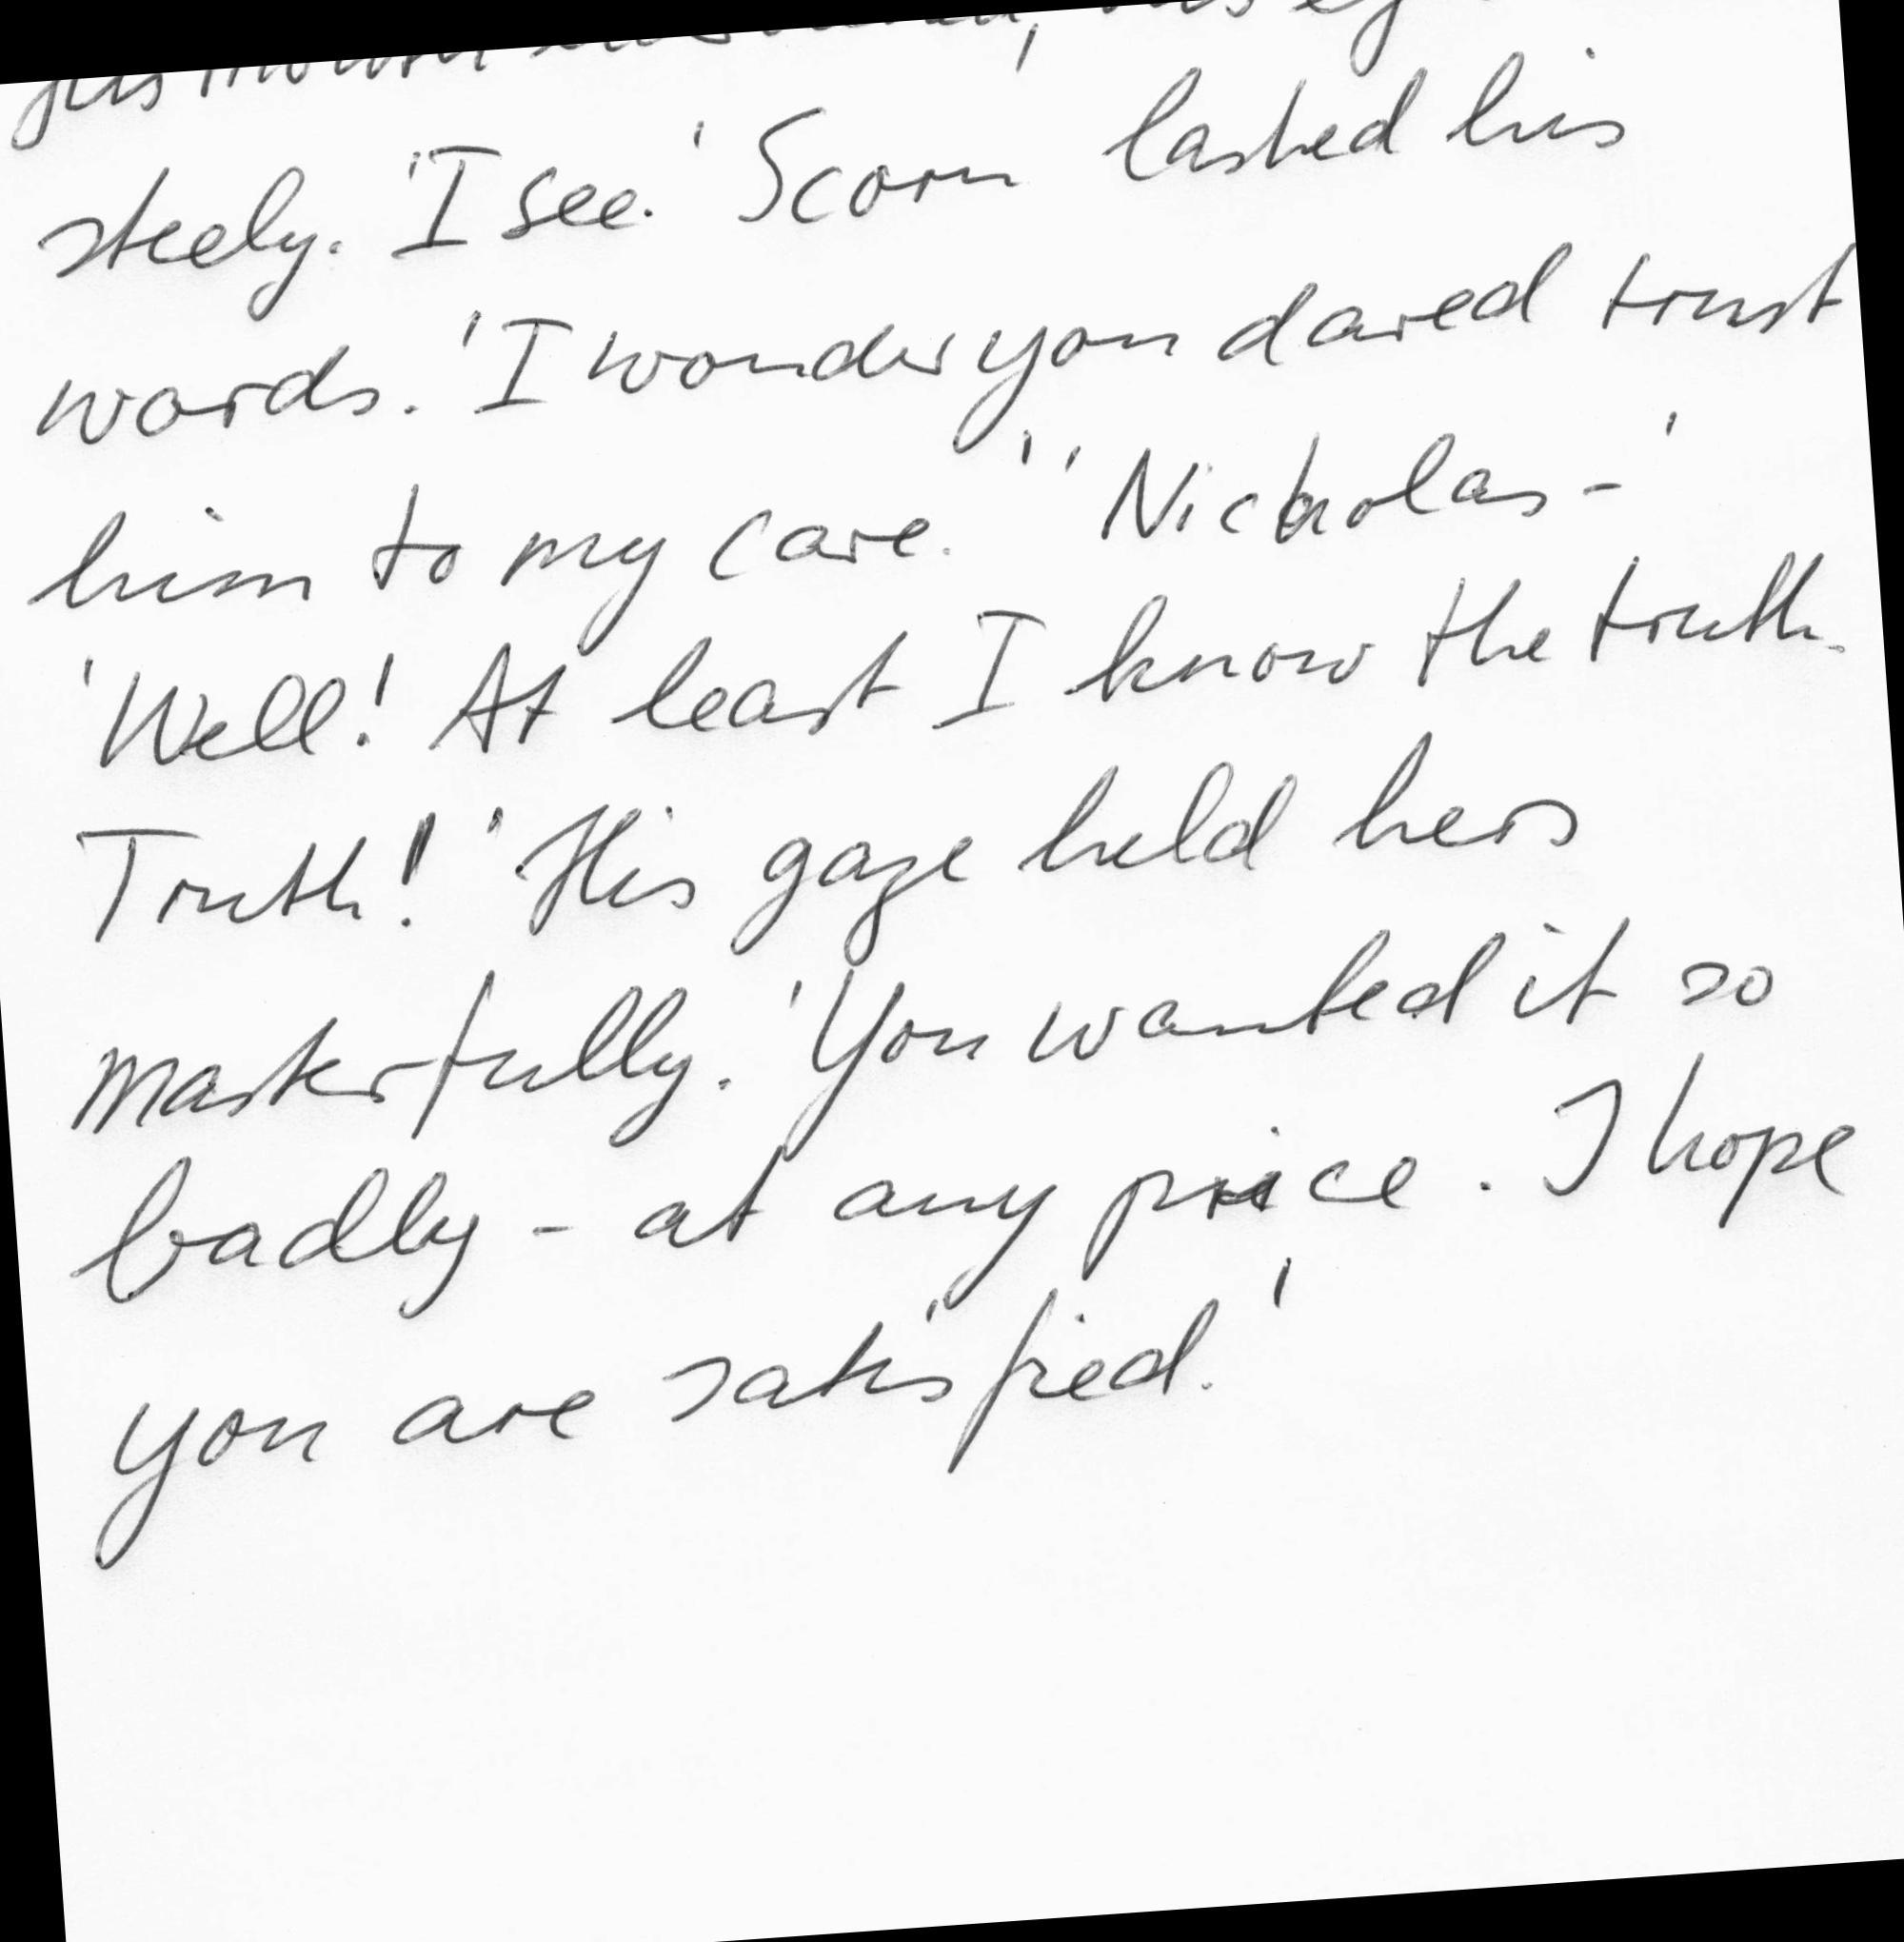 his mouth
steely. 'I see.' Scorn lashed his
words. 'I wonder you dared trust
him to my care.' 'Nicholas-'
'Well! At least I know the truth.
Truth!' His gaze held hers
masterfully. 'You wanted it so
badly - at any price. I hope
you are satisfied.'